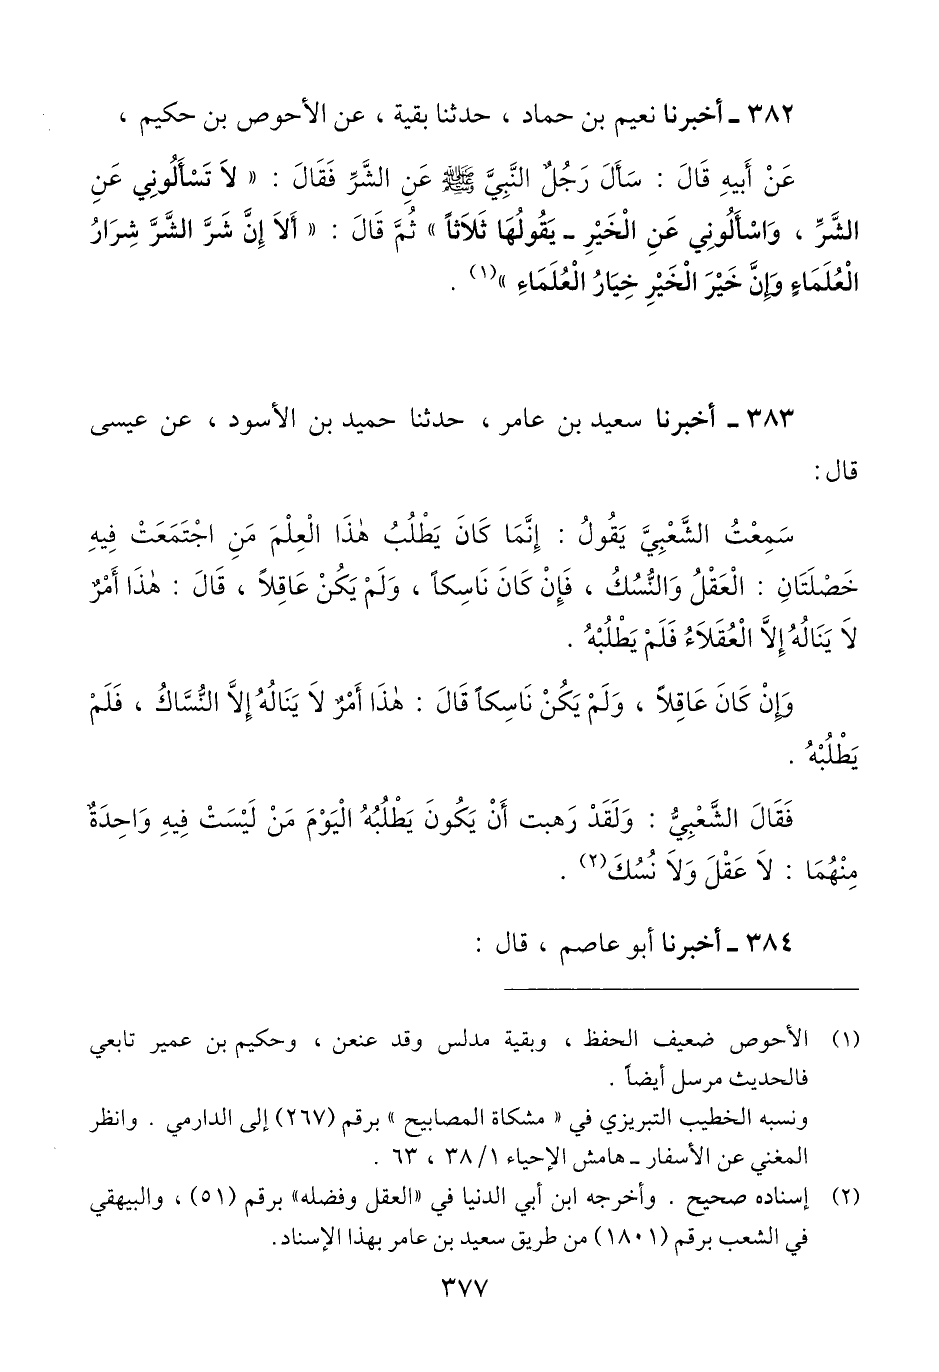 ٣٨٢ ـ أخبرنا نعيم بن حماد ، حدثنا بقية ، عن الأحوص بن حكيم ،
عَنْ أَبيهِ قَالَ : سَأَلَ رَجُلٌ النَّبِيَّ ﷺ عَنِ الشَّرِّ فَقَالَ : « لاَ تَسْأَلُونِي عَنِ
الشَّرِّ ، وَاسْأَلُونِي عَنِ الْخَيْرِ ـ يَقُولُهَا ثَلاَثاً » ثُمَّ قَالَ : « أَلاَ إِنَّ شَرَّ الشَّرَّ شِرَارُ
الْعُلَمَاءِ وَإِنَّ خَيْرَ الْخَيْرِ خِيَارُ الْعُلَمَاءِ »(١) .
٣٨٣ ـ أخبرنا سعيد بن عامر ، حدثنا حميد بن الأسود ، عن عيسى
قال :
سَمِعْتُ الشَّعْبِيَّ يَقُولُ : إِنَّمَا كَانَ يَطْلُبُ هٰذَا الْعِلْمَ مَنِ اجْتَمَعَتْ فِيهِ
خَصْلَتَانِ : الْعَقْلُ وَالنُّسُكُ ، فَإِنْ كَانَ نَاسِكاً ، وَلَمْ يَكُنْ عَاقِلاً ، قَالَ : هٰذَا أَمْرٌ
لاَ يَنَالُهُ إِلاَّ الْعُقَلاَءُ فَلَمْ يَطْلُبْهُ .
وَإِنْ كَانَ عَاقِلاً ، وَلَمْ يَكُنْ نَاسِكاً قَالَ : هٰذَا أَمْرٌ لاَ يَنَالُهُ إِلاَّ النُّسَّاكُ ، فَلَمْ
يَطْلُبْهُ .
فَقَالَ الشَّعْبِيُّ : وَلَقَدْ رَهِبت أَنْ يَكُونَ يَطْلُبُهُ الْيَوْمَ مَنْ لَيْسَتْ فِيهِ وَاحِدَةٌ
مِنْهُمَا : لاَ عَقْلَ وَلاَ نُسُكَ(٢) .
٣٨٤ ـ أخبرنا أبو عاصم ، قال :
(١) الأحوص ضعيف الحفظ ، وبقية مدلس وقد عنعن ، وحكيم بن عمير تابعي
فالحديث مرسل أيضاً .
ونسبه الخطيب التبريزي في « مشكاة المصابيح » برقم (٢٦٧) إلى الدارمي . وانظر
المغني عن الأسفار ـ هامش الإحياء ٣٨/١ ، ٦٣ .
(٢) إسناده صحيح . وأخرجه ابن أبي الدنيا في «العقل وفضله» برقم (٥١) ، والبيهقي
في الشعب برقم (١٨٠١) من طريق سعيد بن عامر بهذا الإسناد.
٣٧٧